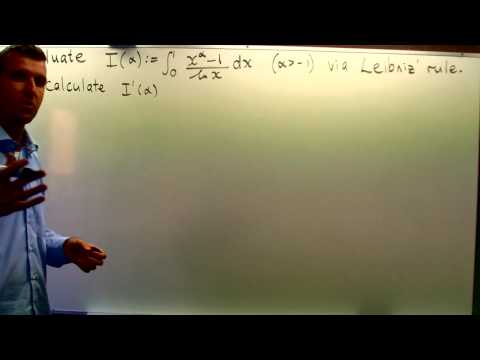 uate I(α) := ∫₀¹ (x^α - 1)/(ln x) dx (α > -1) via Leibniz' rule.
calculate I'(α)